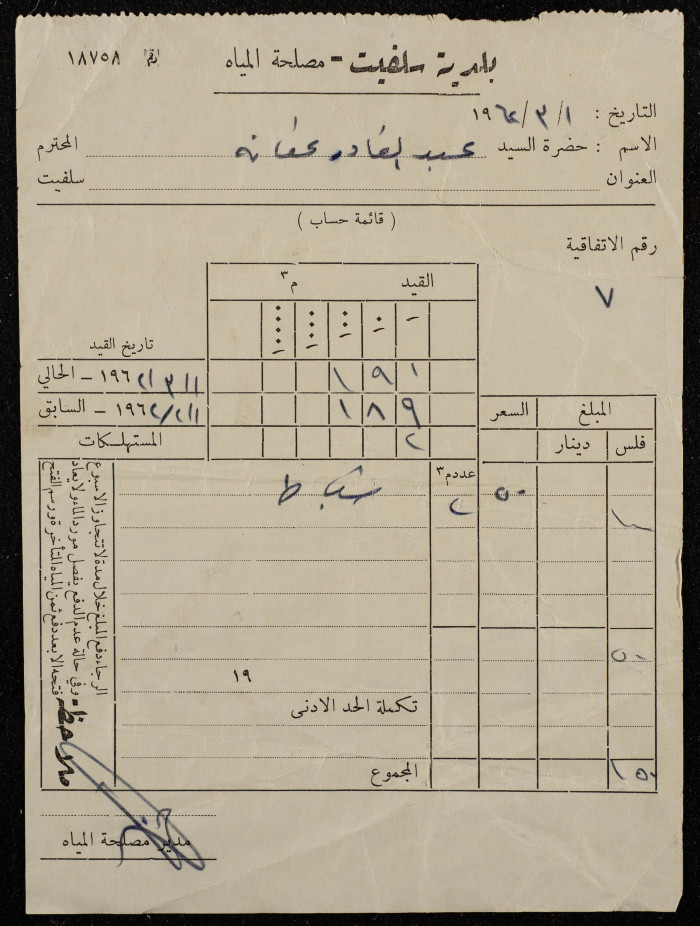 بلدية سلفيت - مصلحة المياه
رقم ١٨٧٥٨
التاريخ : ١/٣/١٩٦٢
الاسم : حضرة السيد عبد القادر عفانه المحترم
العنوان سلفيت
( قائمة حساب )
رقم الاتفاقية
٧
القيد م٣
تاريخ القيد
١٩٦٢/٣/١ - الحالي ١٩١
١٩٦٢/٢/١ - السابق ١٨٩
المستهلكات ٢
المبلغ السعر
فلس دينار
عدد م٣
شباط ٢ ٥٠ ١٠٠
٥٠
١٩
تكملة الحد الادنى
المجموع ١٥٠
ملاحظة - الرجاء دفع المبلغ خلال مدة لا تتجاوز الاسبوع
وفي حالة عدم الدفع يفصل مورد الماء ولا يعاد
فتحه الا بعد دفع ثمن المياه المتأخرة ورسم الفتح
مدير مصلحة المياه